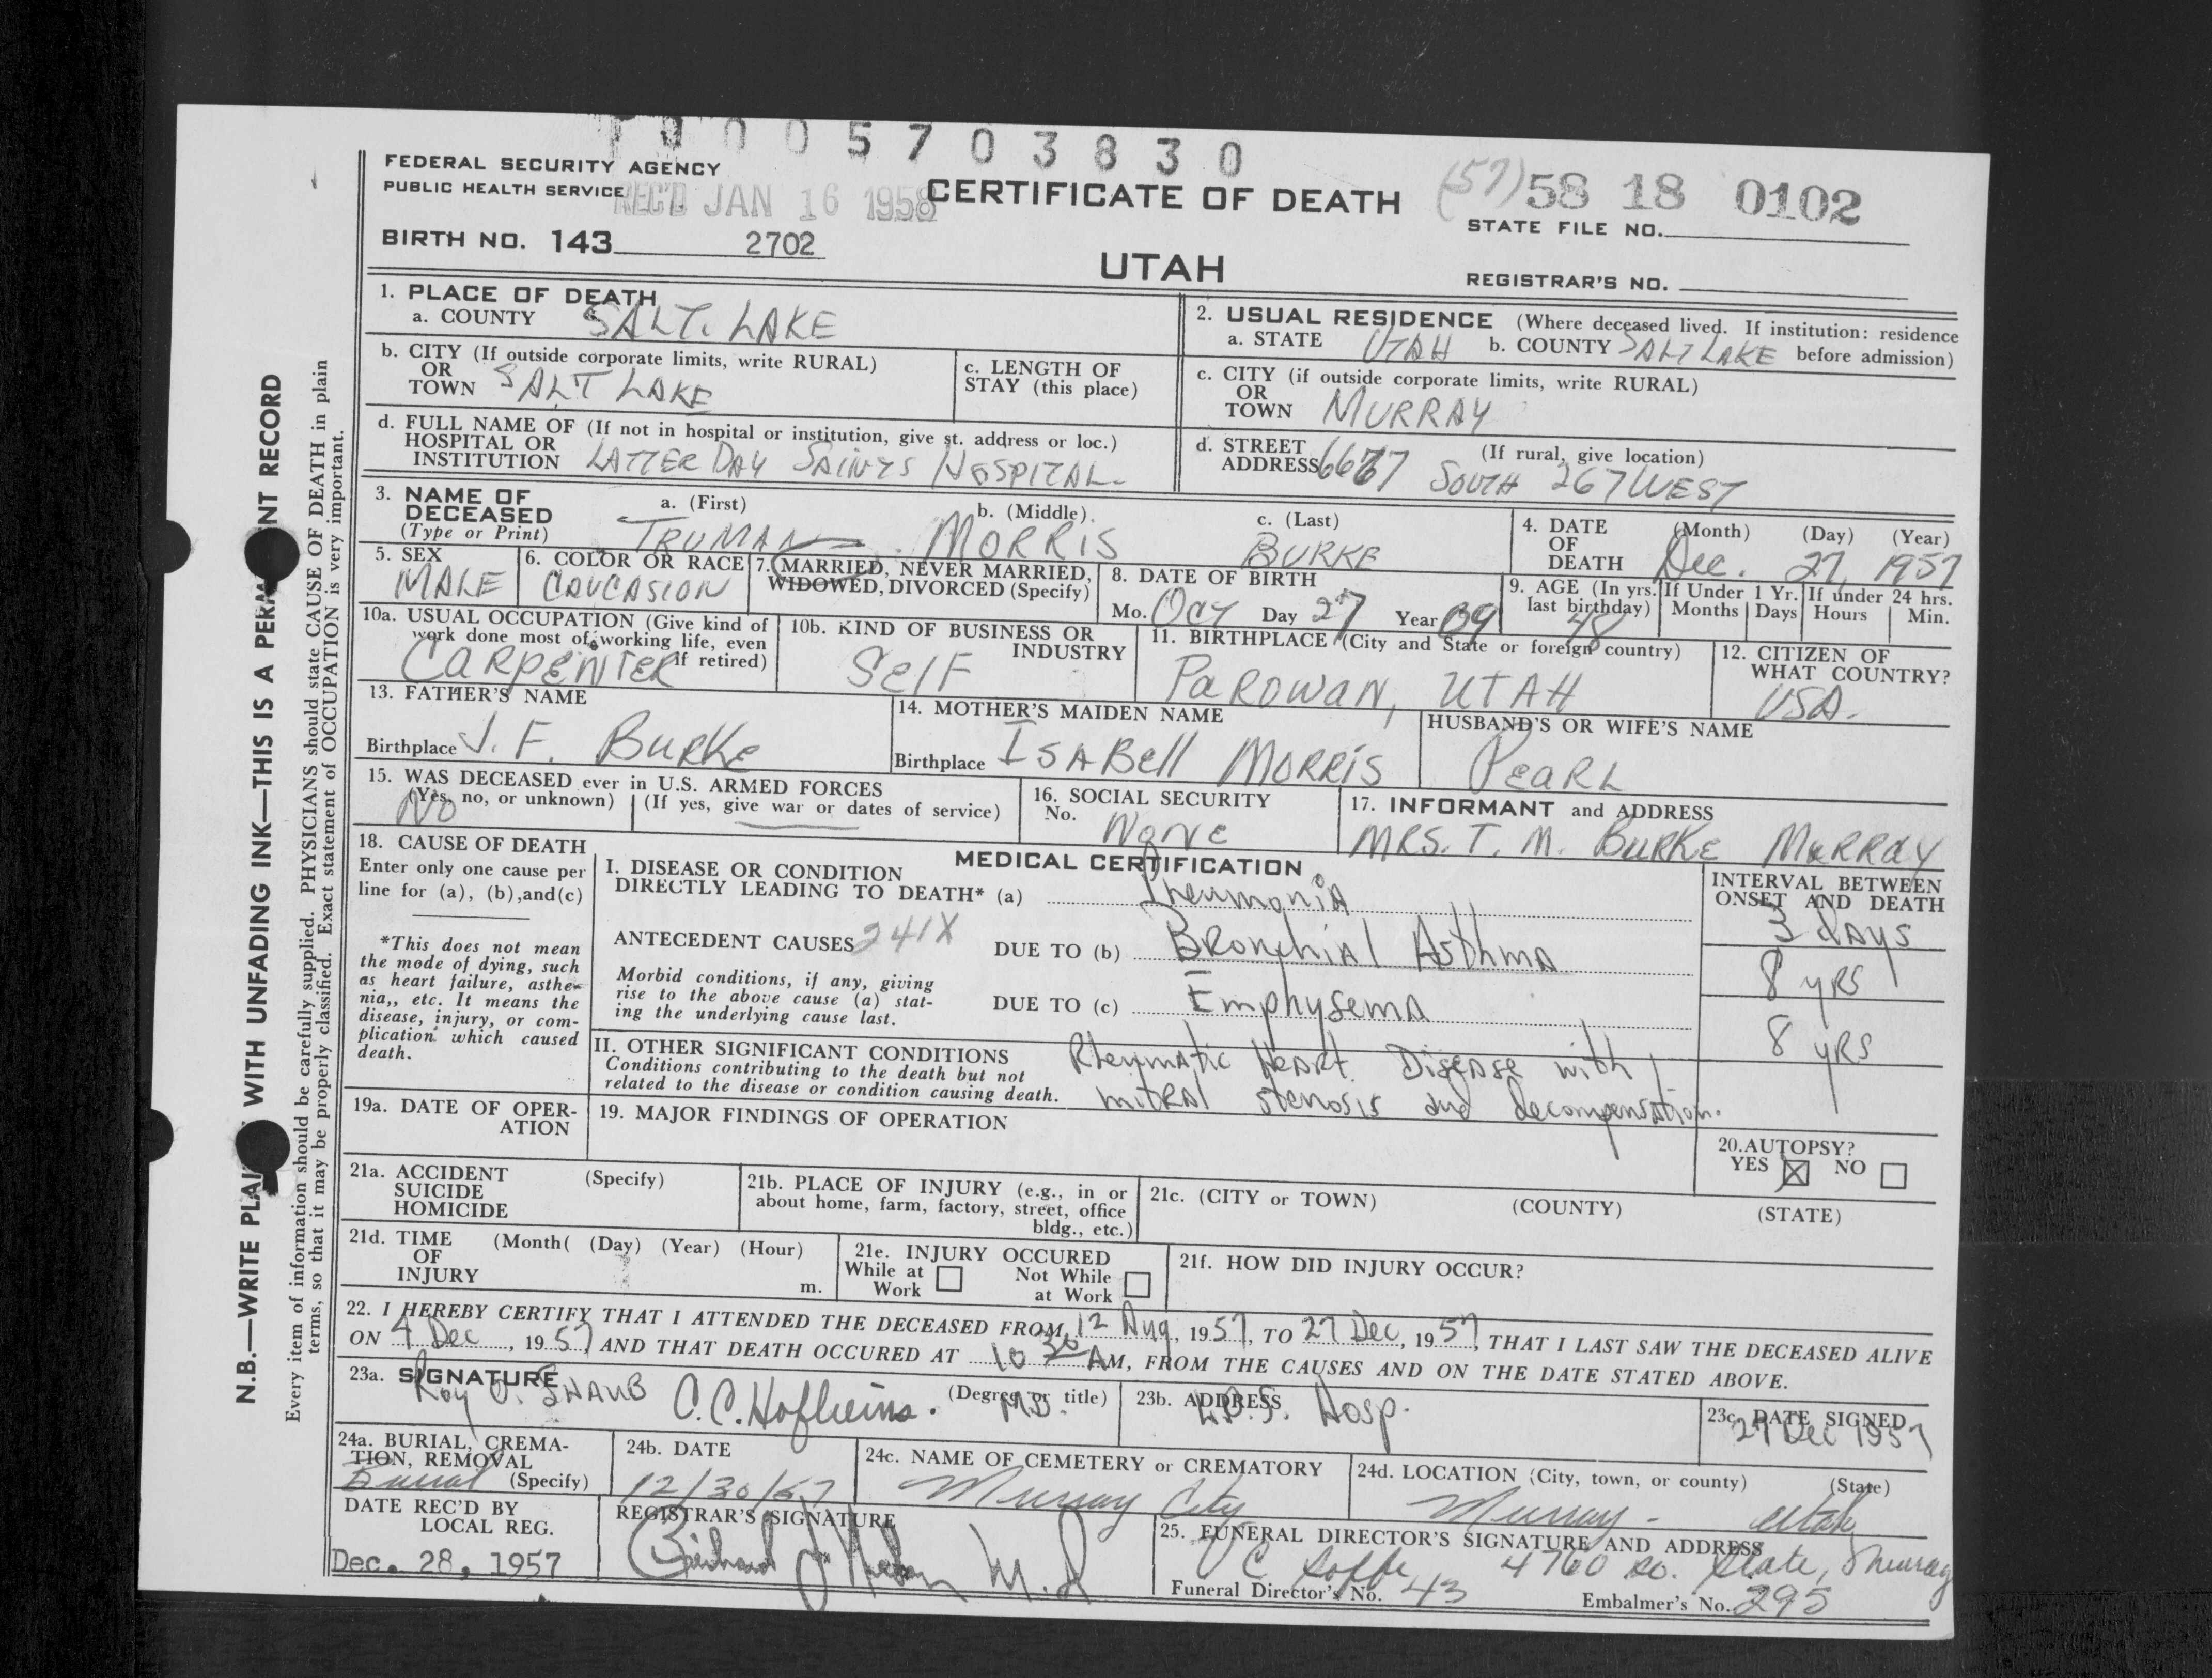 0 0 5 7 0 3 8 3 0
FEDERAL SECURITY AGENCY
PUBLIC HEALTH SERVICE
REC'D JAN 16 1958
CERTIFICATE OF DEATH
(57) 58 18 0102
STATE FILE NO.
BIRTH NO. 143 2702
UTAH
REGISTRAR'S NO.
1. PLACE OF DEATH
a. COUNTY SALT. LAKE
b. CITY (If outside corporate limits, write RURAL)
OR
TOWN SALT LAKE
c. LENGTH OF
STAY (this place)
d. FULL NAME OF (If not in hospital or institution, give st. address or loc.)
HOSPITAL OR
INSTITUTION LATTER DAY SAINTS HOSPITAL
2. USUAL RESIDENCE (Where deceased lived. If institution: residence
a. STATE UTAH b. COUNTY SALT LAKE before admission)
c. CITY (if outside corporate limits, write RURAL)
OR
TOWN MURRAY
d. STREET (If rural, give location)
ADDRESS SOUTH 267 WEST
3. NAME OF
DECEASED
(Type or Print)
a. (First) TRUMAN
b. (Middle) MORRIS
c. (Last) BURKE
4. DATE (Month) (Day) (Year)
OF
DEATH Dec. 27, 1957
5. SEX
MALE
6. COLOR OR RACE
CAUCASION
7. MARRIED, NEVER MARRIED,
WIDOWED, DIVORCED (Specify)
8. DATE OF BIRTH
Mo. Oct Day 27 Year 09
9. AGE (In yrs. last birthday) 48
If Under 1 Yr. Months Days
If under 24 hrs. Hours Min.
10a. USUAL OCCUPATION (Give kind of
work done most of working life, even
if retired)
CARPENTER
10b. KIND OF BUSINESS OR
INDUSTRY
SELF
11. BIRTHPLACE (City and State or foreign country)
PAROWAN, UTAH
12. CITIZEN OF
WHAT COUNTRY?
USA.
13. FATHER'S NAME
Birthplace J. F. BURKE
14. MOTHER'S MAIDEN NAME
Birthplace ISABELL MORRIS
HUSBAND'S OR WIFE'S NAME
PEARL
15. WAS DECEASED ever in U.S. ARMED FORCES
(Yes, no, or unknown) (If yes, give war or dates of service)
NO
16. SOCIAL SECURITY
No. NONE
17. INFORMANT and ADDRESS
MRS. T. M. BURKE MURRAY
18. CAUSE OF DEATH
Enter only one cause per
line for (a), (b),and(c)
*This does not mean
the mode of dying, such
as heart failure, asthe-
nia,, etc. It means the
disease, injury, or com-
plication which caused
death.
MEDICAL CERTIFICATION
I. DISEASE OR CONDITION
DIRECTLY LEADING TO DEATH* (a) Pneumonia
ANTECEDENT CAUSES 241X DUE TO (b) Bronchial Asthma
Morbid conditions, if any, giving
rise to the above cause (a) stat-
ing the underlying cause last.
DUE TO (c) Emphysema
INTERVAL BETWEEN
ONSET AND DEATH
3 days
8 yrs
8 yrs
II. OTHER SIGNIFICANT CONDITIONS
Conditions contributing to the death but not
related to the disease or condition causing death.
Rheumatic Heart Disease with
mitral stenosis and decompensation.
19a. DATE OF OPER-
ATION
19. MAJOR FINDINGS OF OPERATION
20. AUTOPSY?
YES ☒ NO ☐
21a. ACCIDENT (Specify)
SUICIDE
HOMICIDE
21b. PLACE OF INJURY (e.g., in or
about home, farm, factory, street, office
bldg., etc.)
21c. (CITY or TOWN) (COUNTY) (STATE)
21d. TIME (Month( (Day) (Year) (Hour)
OF
INJURY m.
21e. INJURY OCCURED
While at Work ☐ Not While at Work ☐
21f. HOW DID INJURY OCCUR?
22. I HEREBY CERTIFY THAT I ATTENDED THE DECEASED FROM 12 Aug, 1957, TO 27 Dec, 1957, THAT I LAST SAW THE DECEASED ALIVE
ON 4 Dec, 1957 AND THAT DEATH OCCURED AT 10 30 AM, FROM THE CAUSES AND ON THE DATE STATED ABOVE.
23a. SIGNATURE C.C. Hofheins. (Degree or title) M.D.
23b. ADDRESS L.D.S. Hosp.
23c. DATE SIGNED
27 Dec 1957
24a. BURIAL, CREMA-
TION, REMOVAL
Burial (Specify)
24b. DATE
12/30/57
24c. NAME OF CEMETERY or CREMATORY
Murray City
24d. LOCATION (City, town, or county) (State)
Murray - Utah
DATE REC'D BY
LOCAL REG.
Dec. 28, 1957
REGISTRAR'S SIGNATURE
M.D
25. FUNERAL DIRECTOR'S SIGNATURE AND ADDRESS
4760 So. State, Murray
Funeral Director's No. 43 Embalmer's No. 295
N.B.—WRITE PLAI WITH UNFADING INK—THIS IS A PERMA NT RECORD
Every item of information should be carefully supplied. PHYSICIANS should state CAUSE OF DEATH in plain
terms, so that it may be properly classified. Exact statement of OCCUPATION is very important.